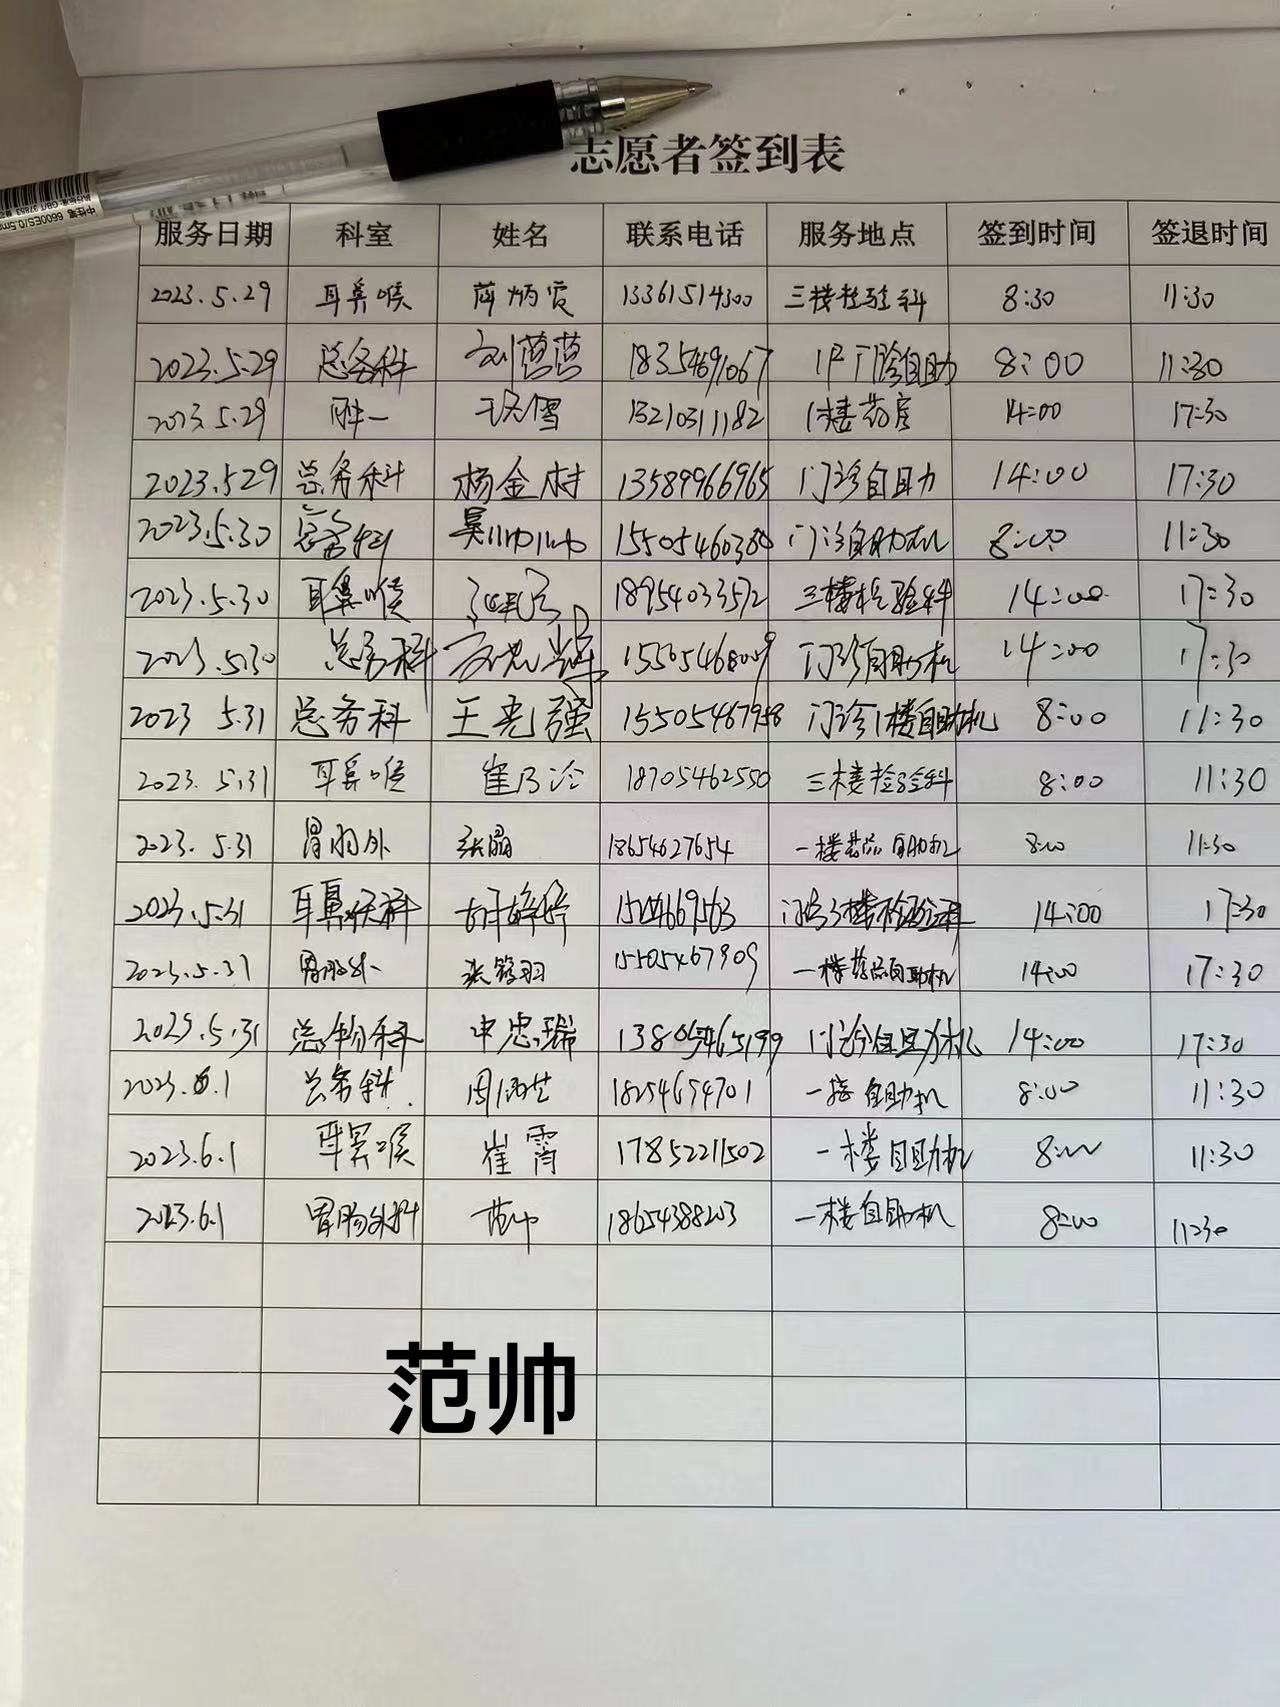 中性笔 6600ES/0.5m
志愿者签到表
服务日期 科室 姓名 联系电话 服务地点 签到时间 签退时间
2023.5.29 耳鼻喉 薛炳霞 13361514300 三楼检验科 8:30 11:30
2023.5.29 总务科 刘莒莒 18354691067 1F门诊自助 8:00 11:30
2023.5.29 肿一 13210311182 1楼药房 14:00 17:30
2023.5.29 总务科 杨金村 13589966965 门诊自助 14:00 17:30
2023.5.30 总务科 吴帅帅 15505460380 门诊自助机 8:00 11:30
2023.5.30 耳鼻喉 18954033572 三楼检验科 14:00 17:30
2023.5.30 总务科 15505468009 门诊自助机 14:00 17:30
2023 5.31 总务科 王光强 15505467958 门诊1楼自助机 8:00 11:30
2023.5.31 耳鼻喉 崔乃治 18705462550 三楼检验科 8:00 11:30
2023.5.31 胃肠外 张晶 18654627654 一楼药品自助机 8:00 11:30
2023.5.31 耳鼻喉科 胡婷婷 门诊3楼检验科 14:00 17:30
2023.5.31 胃肠外 15505467909 一楼药品自助机 14:00 17:30
2023.5.31 总务科 申忠瑞 门诊自助机 14:00 17:30
2023.6.1 总务科 18254654701 一楼自助机 8:00 11:30
2023.6.1 耳鼻喉 崔霄 17852211502 一楼自助机 8:00 11:30
2023.6.1 胃肠外科 范帅 18654388203 一楼自助机 8:00 11:30
范帅